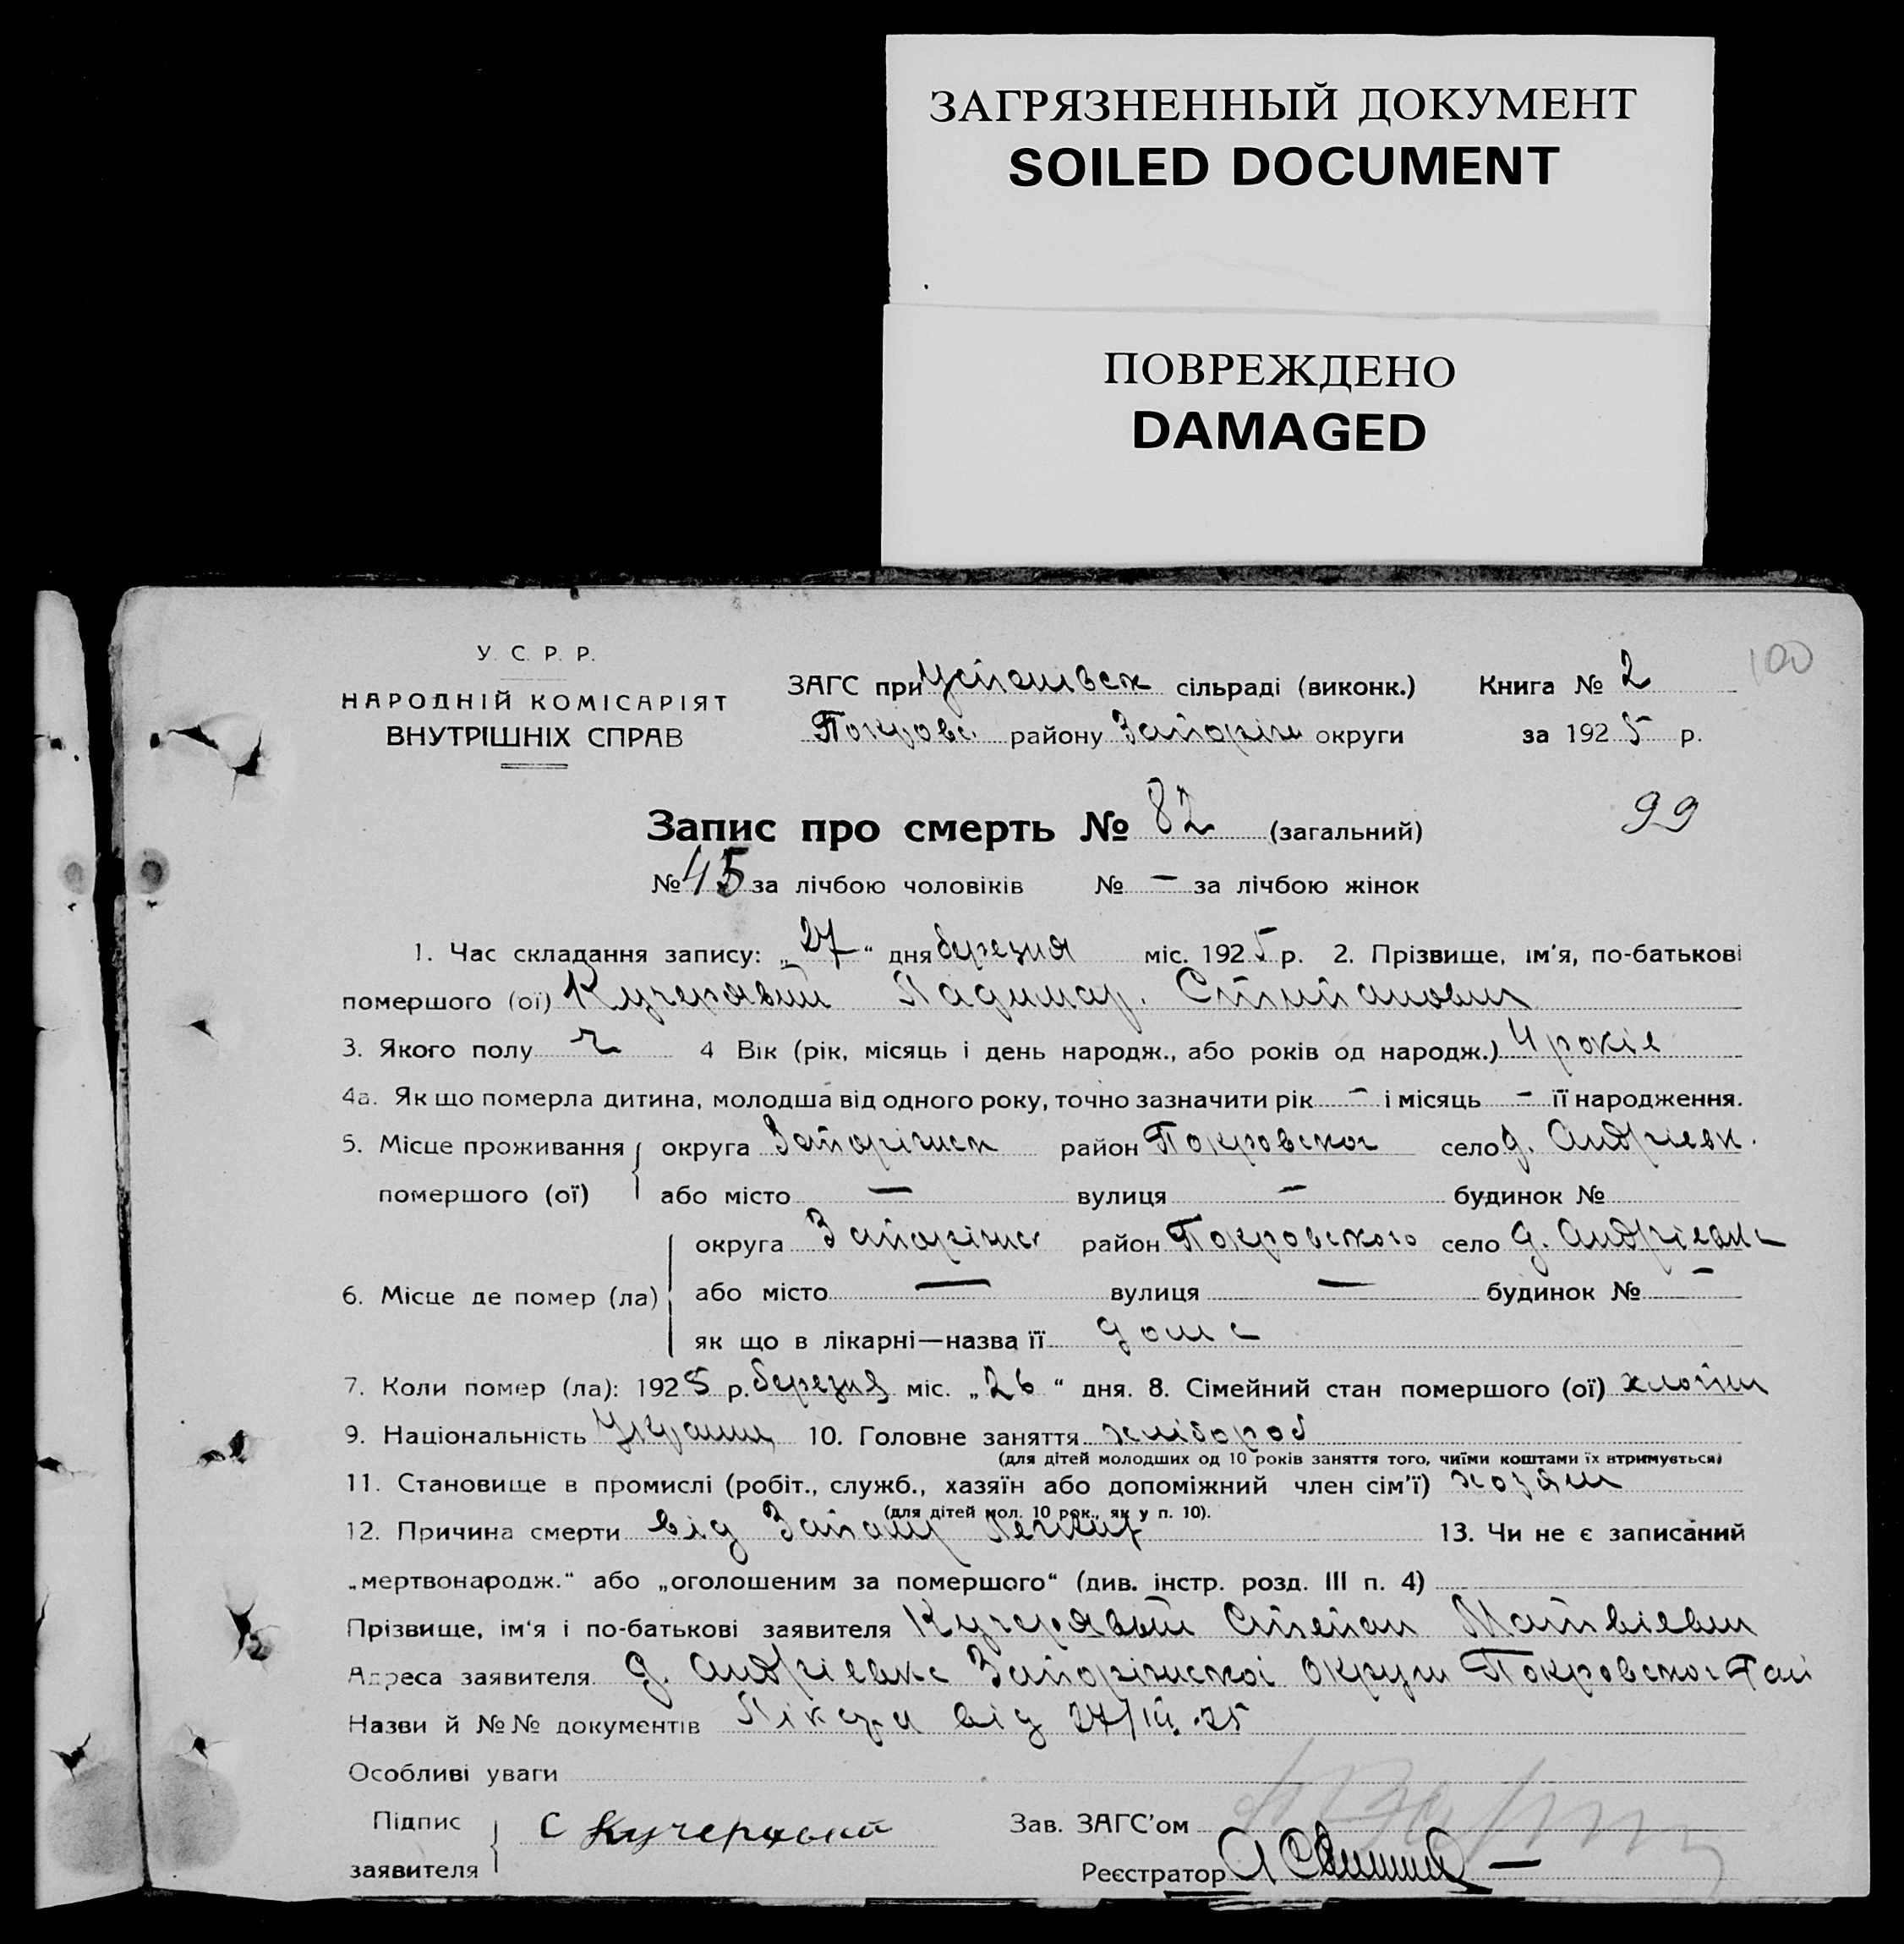 ЗАГРЯЗНЕННЫЙ ДОКУМЕНТ
SOILED DOCUMENT
ПОВРЕЖДЕНО
DAMAGED
100
У. С. Р. Р.
НАРОДНІЙ КОМІСАРІЯТ
ВНУТРІШНІХ СПРАВ
ЗАГС при сільраді (виконк.) Книга № 2
Покровс. району Запоріж округи за 1925 р.
Запис про смерть № 82 (загальний) 99
№ 45 за лічбою чоловіків № — за лічбою жінок
1. Час складання запису: „27“ дня березня міс. 1925 р. 2. Прізвище, ім'я, по-батькові
помершого (ої) Кучерявий
3. Якого полу ч 4 Вік (рік, місяць і день народж., або років од народж.) 4 років
4а. Як що померла дитина, молодша від одного року, точно зазначити рік — і місяць — її народження.
5. Місце проживання округа Запоріжск район Покровског село д. Андріевк.
помершого (ої) або місто — вулиця — будинок №
6. Місце де помер (ла) округа район Покровского село д. Андріевкс
або місто — вулиця — будинок № —
як що в лікарні—назва її дома
7. Коли помер (ла): 1925 р. березня міс. „26“ дня. 8. Сімейний стан помершого (ої)
9. Національність Україн 10. Головне заняття хлібороб
(для дітей молодших од 10 років заняття того, чиїми коштами їх втримується)
11. Становище в промислі (робіт., служб., хазяїн або допоміжний член сім'ї) хозяин
(для дітей мол. 10 рок., як у п. 10).
12. Причина смерти від 13. Чи не є записаний
„мертвонародж.“ або „оголошеним за помершого“ (див. інстр. розд. III п. 4)
Прізвище, ім'я і по-батькові заявителя Кучерявый Степан Матвіевич
Адреса заявителя д. Андріевкс Запоріжскоі округи Покровског Рай
Назви й №№ документів від 27/III.25
Особливі уваги
Підпис заявителя С Кучерявый
Зав. ЗАГС'ом
Реєстратор